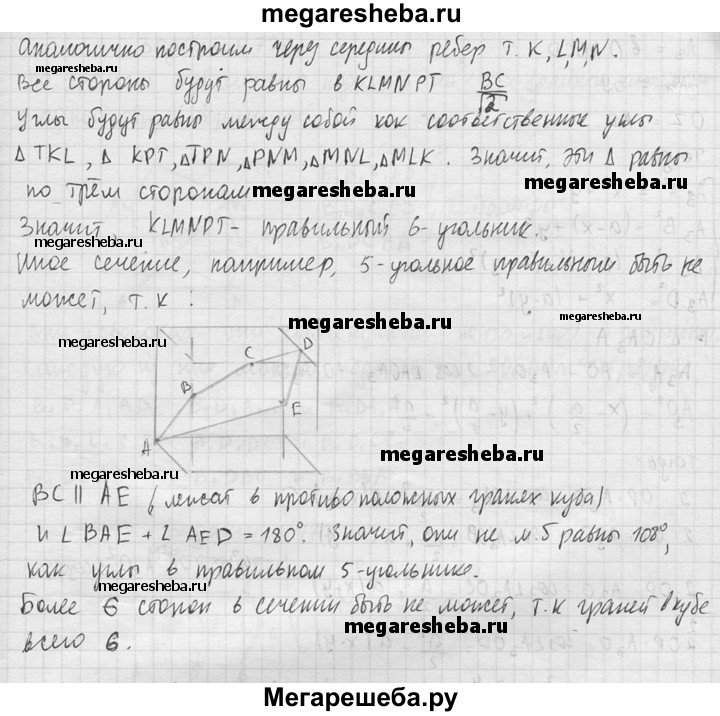 megaresheba.ru
Аналогично построим через середины ребер т. K, L, M, N.
megaresheba.ru
megaresheba.ru
Все стороны будут равны в KLMNPT BC/√2
Углы будут равны между собой как соответственные углы
Δ TKL, Δ KPT, Δ TPN, Δ PNM, Δ MNL, Δ MLK. Значит, эти Δ равны
по трём сторонам
megaresheba.ru
megaresheba.ru
Значит, KLMNPT - правильный 6-угольник.
megaresheba.ru
Иное сечение, например, 5-угольное правильным быть не
может, т.к :
megaresheba.ru
megaresheba.ru
megaresheba.ru
D
C
B
E
A
megaresheba.ru
megaresheba.ru
BC || AE (лежат в противоположных гранях куба)
и ∠ BAE + ∠ AED = 180°. Значит, они не м.б равны 108°,
как углы в правильном 5-угольнике.
Более 6 сторон в сечении быть не может, т.к граней в кубе
megaresheba.ru
всего 6.
Мегарешеба.ру